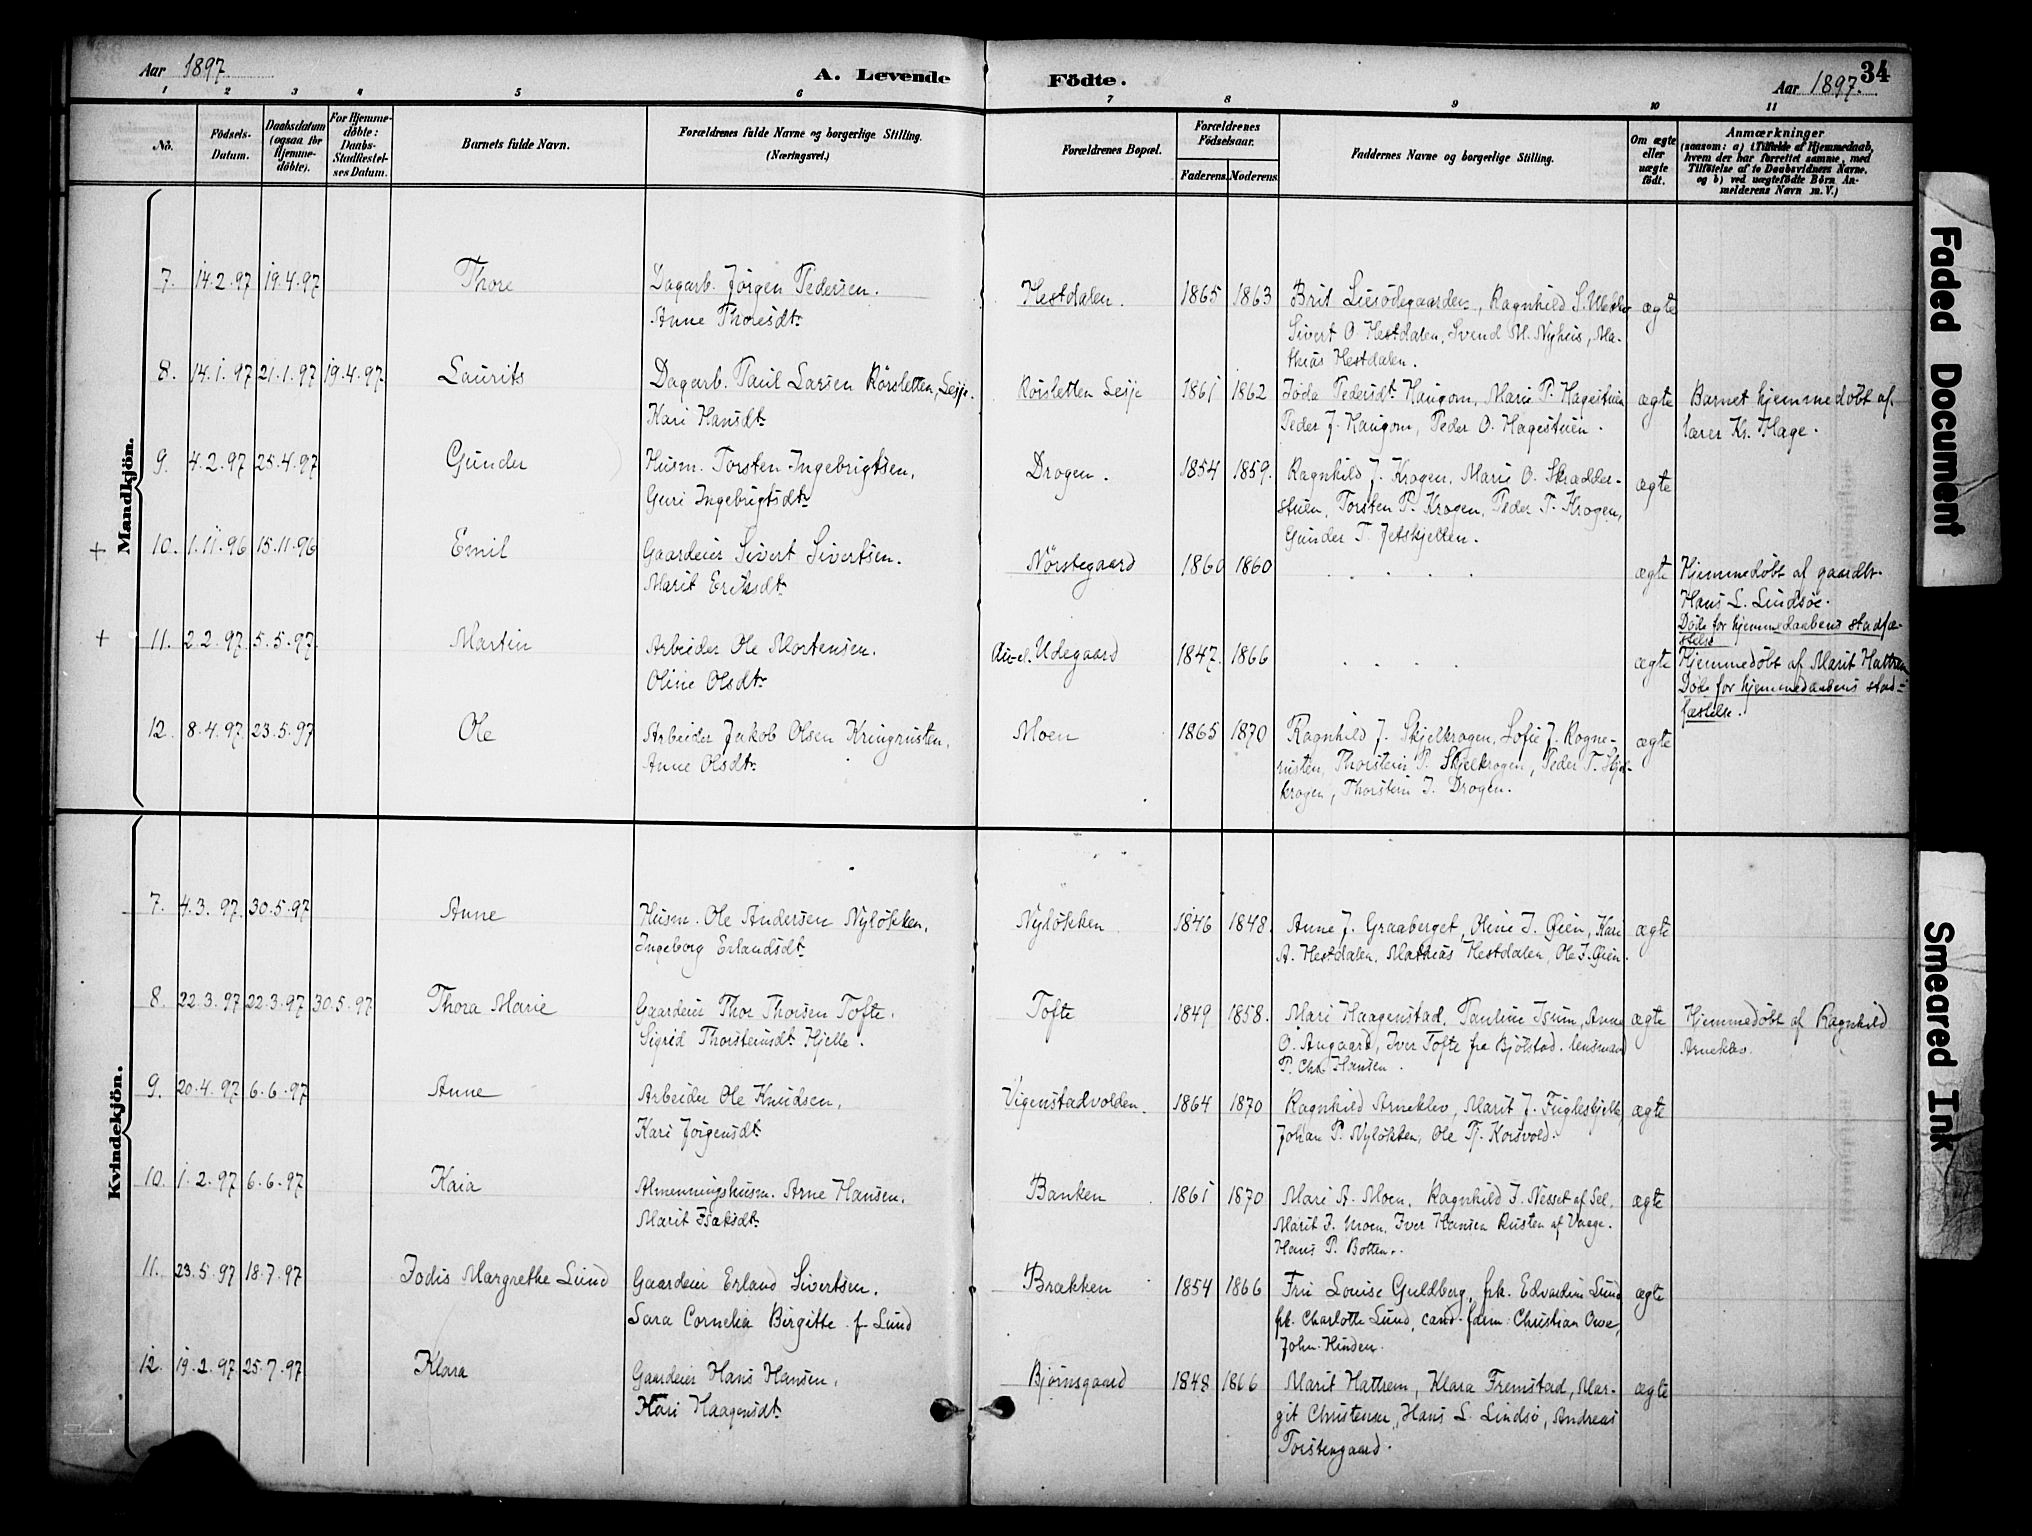 Aar 1897
A. Levende Födte.
34
Aar 1897.
1 2 3 4 5 6 7 8 9 10 11
No.
Födsels-
Datum.
Daabsdatum
(ogsaa for
Hjemme-
döbte).
For Hjemme-
döbte:
Daabs-
Stadfæstel-
ses Datum.
Barnets fulde Navn.
Forældrenes fulde Navne og borgerlige Stilling.
(Næringsvei.)
Forældrenes Bopæl.
Forældrenes
Födselsaar.
Faderens. Moderens.
Faddernes Navne og borgerlige Stilling.
Om ægte
eller
uægte
födt.
Anmærkninger
(saasom: a) i Tilfælde af Hjemmedaab,
hvem der har forrettet samme, med
Tilföielse af to Daabsvidners Navne,
og b) ved uægtefödte Börn An-
melderens Navn m. V.)
Mandkjön.
7. 14.2.97 19.4.97 Thore
Dagarb. Jörgen Pedersen.
Anne Thoresdtr
Hestdalen. 1865 1863
Brit, Ragnhild S.
Sivert O Hestdalen, Svend M. Nyhus, Ma-
thias Hestdalen.
ægte
8. 14.1.97 21.1.97 19.4.97 Laurits
Dagarb. Paul Larsen Rörsletten, Lesje.
Kari Hansdtr
Rörsletten Lesje 1861 1862
Pedersdtr Haugom, Marie P. Hagestuen
Peder J. Haugom, Peder O. Hagestuen.
ægte
Barnet hjemmedöbt af
lærer Kr. Hage.
9. 4.2.97 25.4.97 Gunder
Husm. Torsten Ingebrigtsen,
Guri Ingebrigtsdtr
Drogen. 1854 1859.
Ragnhild J. Krogen, Marie O. Skrædder-
stuen, Torsten P. Krogen, Peder T. Krogen,
Gunder T. Jetskjellen.
ægte
+ 10. 1.11.96 15.11.96 Emil
Gaardeier Sivert Sivertsen.
Marit Eriksdtr
Nörstegaard 1860 1860
ægte
Hjemmedöbt af gaardbr.
Hans L. Lindsöe.
Döde for hjemmedaabens stadfæ-
stelse
+ 11. 2.2.97 5.5.97 Martin
Arbeider Ole Mortensen.
Oline Olsdtr
Udegaard 1847. 1866
ægte
Hjemmedöbt af Marit Hattrem
Döde for hjemmedaabens stad-
fæstelse.
12. 8.4.97 23.5.97 Ole
Arbeider Jakob Olsen Kringrusten,
Anne Olsdtr
Moen 1865 1870
Ragnhild J. Skjelkrogen, Sofie J. Rogne-
rusten, Thorstein P. Skjelkrogen, Peder T. Skjel-
krogen, Thorstein I. Drogen.
ægte
Kvindekjön.
7. 4.3.97 30.5.97 Anne
Husm. Ole Andersen Nylökken,
Ingeborg Erlandsdtr
Nylökken 1846 1848.
Anne J. Graaberget, Oline I. Öien, Kari
A. Hestdalen, Mathias Hestdalen, Ole I. Öien.
ægte
8. 22.3.97 22.3.97 30.5.97 Thora Marie
Gaardeier Thor Thorsen Tofte,
Sigrid Thorsteinsdtr Hjelle.
Tofte 1849 1858.
Mari Haagenstad, Pauline Isum, Anne
O. Angaard, Iver Tofte fra Bjölstad, lensmand
P. Chr. Hansen.
ægte
Hjemmedöbt af Ragnhild
Arneklev.
9. 20.4.97 6.6.97 Anne
Arbeider Ole Knudsen,
Kari Jörgensdtr
Vigenstadvolden. 1864 1870
Ragnhild Arneklev, Marit J. Fugleskjelle,
Johan P. Nylökken, Ole Korsvold.
ægte
10. 1.2.97 6.6.97 Kaia
Almenningshusm. Arne Hansen.
Marit Isaksdtr
Banken 1861 1870
Mari A. Moen, Ragnhild I. Nesset af Sel,
Marit I. Moen, Iver Hansen Rusten af Vaage.
Hans P. Botten.
ægte
11. 23.5.97 18.7.97 Jodis Margrethe Lund
Gaardeier Erland Sivertsen.
Sara Cornelia Birgitte f. Lund
Brækken 1854 1866
Fru Louise Guldberg, frk. Edvardine Lund
frk. Charlotte Lund, cand. Christian
John Hinden.
ægte
12. 19.2.97 25.7.97 Klara
Gaardeier Hans Hansen,
Kari Haagensdtr
Björnsgaard 1848 1866
Marit Hattrem, Klara Fremstad, Mar-
git Christensen, Hans L. Lindsö, Andreas
Torstengaard.
ægte
Faded Document
Smeared Ink